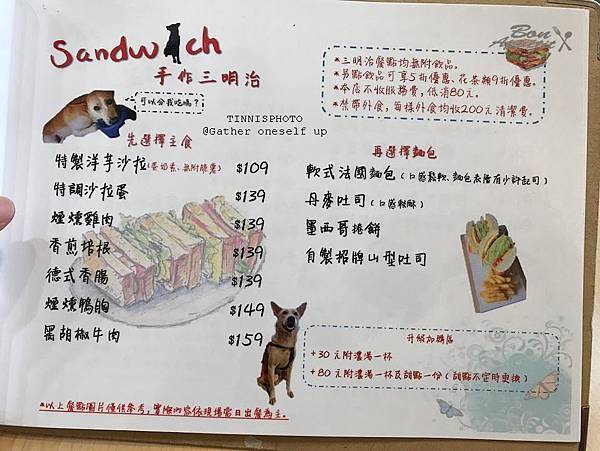 Sandwich
手作三明治
Bon
Appetit
*三明治餐點均無附飲品。
*另點飲品可享5折優惠、花茶類9折優惠。
*本店不收服務費,低消80元。
*禁帶外食,每樣外食均收200元清潔費。
可以分我吃嗎?
TINNISPHOTO
@Gather oneself up
先選擇主食
特製洋芋沙拉(蛋奶素、無附脆薯) $109
特調沙拉蛋 $139
煙燻雞肉 $139
香煎培根 $139
德式香腸 $139
煙燻鴨胸 $149
黑胡椒牛肉 $159
再選擇麵包
軟式法國麵包(口感鬆軟、麵包表層有少許起司)
丹麥吐司(口感較酥)
墨西哥捲餅
自製招牌山型吐司
升級加購區
+30元附濃湯一杯
+80元附濃湯一杯及甜點一份(甜點不定時更換)
*以上餐點圖片僅供參考,實際內容依現場當日出餐為主。